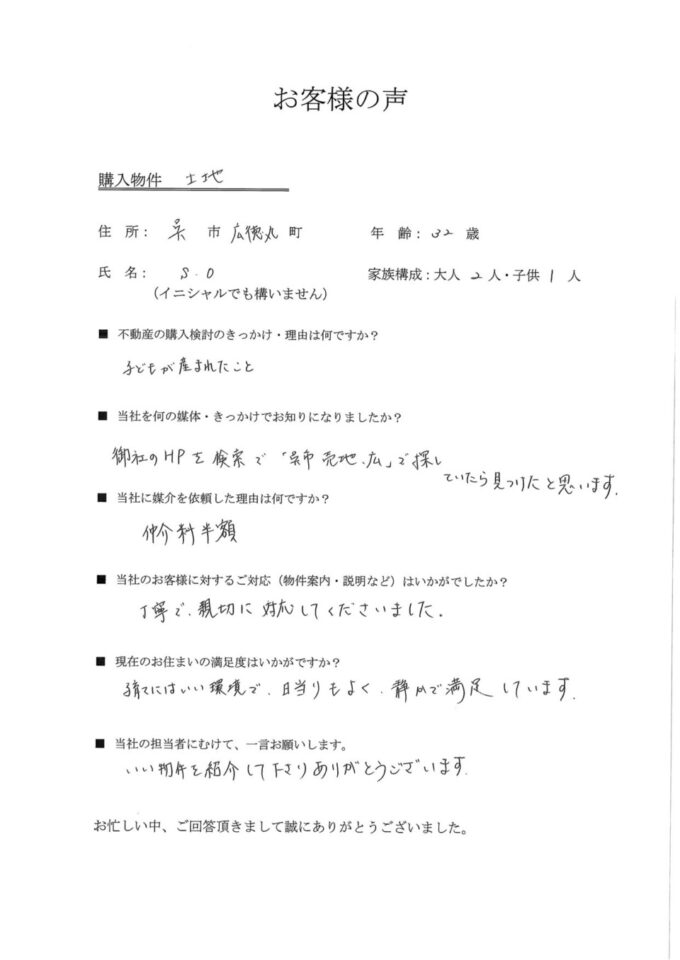 お客様の声
購入物件 土地
住 所： 呉 市 広徳丸 町 年 齢：32 歳
氏 名： S.O 家族構成：大人 2 人・子供 1 人
（イニシャルでも構いません）
■ 不動産の購入検討のきっかけ・理由は何ですか？
子どもが産まれたこと
■ 当社を何の媒体・きっかけでお知りになりましたか？
御社のHPを検索で「呉市 売地、広」で探し
ていたら見つけたと思います。
■ 当社に媒介を依頼した理由は何ですか？
仲介料半額
■ 当社のお客様に対するご対応（物件案内・説明など）はいかがでしたか？
丁寧で、親切に対応してくださいました。
■ 現在のお住まいの満足度はいかがですか？
子育てにはいい環境で、日当りもよく、静かで満足しています。
■ 当社の担当者にむけて、一言お願いします。
いい物件を紹介して下さりありがとうございます。
お忙しい中、ご回答頂きまして誠にありがとうございました。